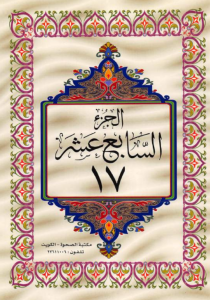 الجزء
السابع عشر
١٧
مكتبة الصحوة - الكويت